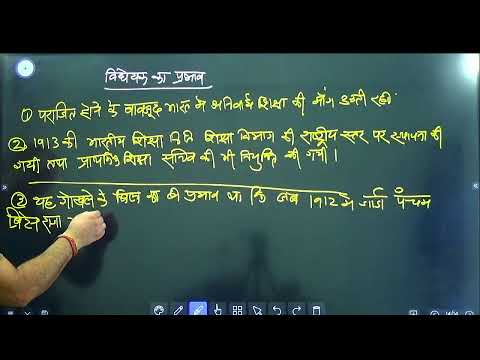 विधेयक का प्रभाव
① पराजित होने के बावजूद भारत में अनिवार्य शिक्षा की माँग उठती रही
② 1913 की भारतीय शिक्षा शिक्षा विभाग की राष्ट्रीय स्तर पर स्थापना की
गयी तथा शिक्षा सचिव की भी नियुक्ति की गयी ।
③ यह गोखले के बिल का ही प्रभाव था कि जब 1912 में जार्ज पंचम